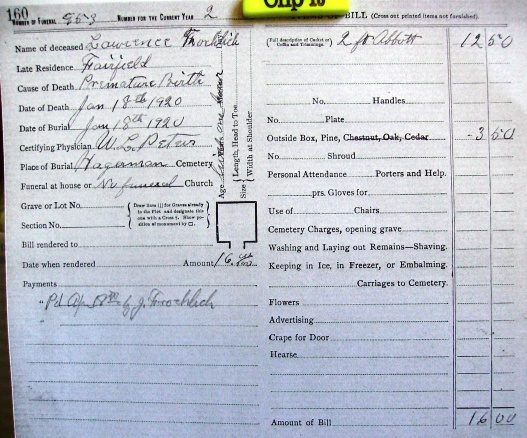 160
Clip 10
NUMBER OF FUNERAL 953 NUMBER FOR THE CURRENT YEAR 2
Name of deceased Lawrence Froehlich
Late Residence Fairfield
Cause of Death Premature Birth
Date of Death Jan 18th 1920
Date of Burial Jan 18th 1920
Certifying Physician W. L. Peters
Place of Burial Hagerman Cemetery
Funeral at house or No funeral Church
Grave or Lot No.
Section No.
Draw lines for Graves already in the Plot and designate this one with a Cross †. Show position of monument by □.
Bill rendered to
Date when rendered Amount 16.00
Payments
" Pd Ap by J. Froehlich
"
Age
Size Length, Head to Toe
Width at Shoulder
OF BILL (Cross out printed items not furnished).
(Full description of Casket or Coffin and Trimmings. 2 ft Abbott 12 50
No. Handles
No. Plate
Outside Box, Pine, Chestnut, Oak, Cedar 3 50
No. Shroud
Personal Attendance Porters and Help.
prs. Gloves for
Use of Chairs
Cemetery Charges, opening grave
Washing and Laying out Remains—Shaving.
Keeping in Ice, in Freezer, or Embalming.
Carriages to Cemetery.
Flowers
Advertising
Crape for Door
Hearse
Amount of Bill 16 00